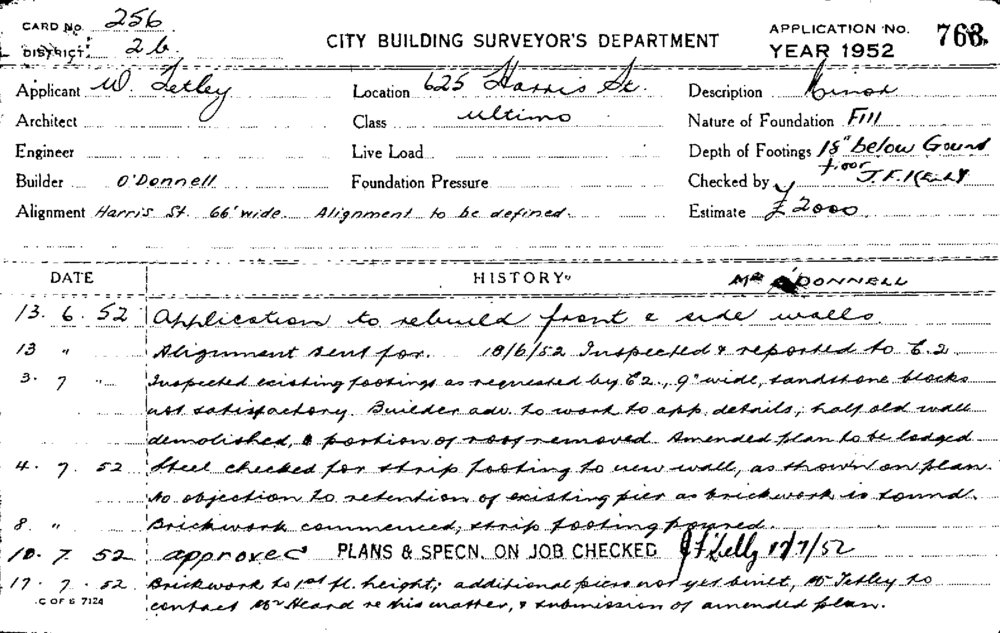 CARD No. 256
DISTRICT: 2b.
CITY BUILDING SURVEYOR'S DEPARTMENT
APPLICATION No. 768
YEAR 1952
Applicant W. Tetley Location 625 Harris St. Description Minor
Architect Class Ultimo Nature of Foundation Fill
Engineer Live Load Depth of Footings 18" below Ground floor
Builder O'Donnell Foundation Pressure Checked by J.F. Kelly
Alignment Harris St. 66' wide. Alignment to be defined. Estimate £2000
DATE HISTORY Mr O'DONNELL
13. 6. 52 Application to rebuild front & side walls.
13 " Alignment sent for. 18/6/52 Inspected & reported to E.2
3. 7 " Inspected existing footings as requested by E2., 9" wide, sandstone blocks
not satisfactory. Builder adv. to work to app. details; half old wall
demolished, & portion of roof removed. Amended plan to be lodged
4. 7. 52 Steel checked for strip footing to new wall, as shown on plan.
No objection to retention of existing pier as brickwork is sound.
8. " Brickwork commenced; strip footing poured.
10. 7. 52 approved PLANS & SPECN. ON JOB CHECKED 17/7/52
17. 7. 52 Brickwork to 1st fl. height; additional piers not yet built, Mr Tetley to
C OF S 7124
contact Mr Heard re this matter, & submission of amended plan.